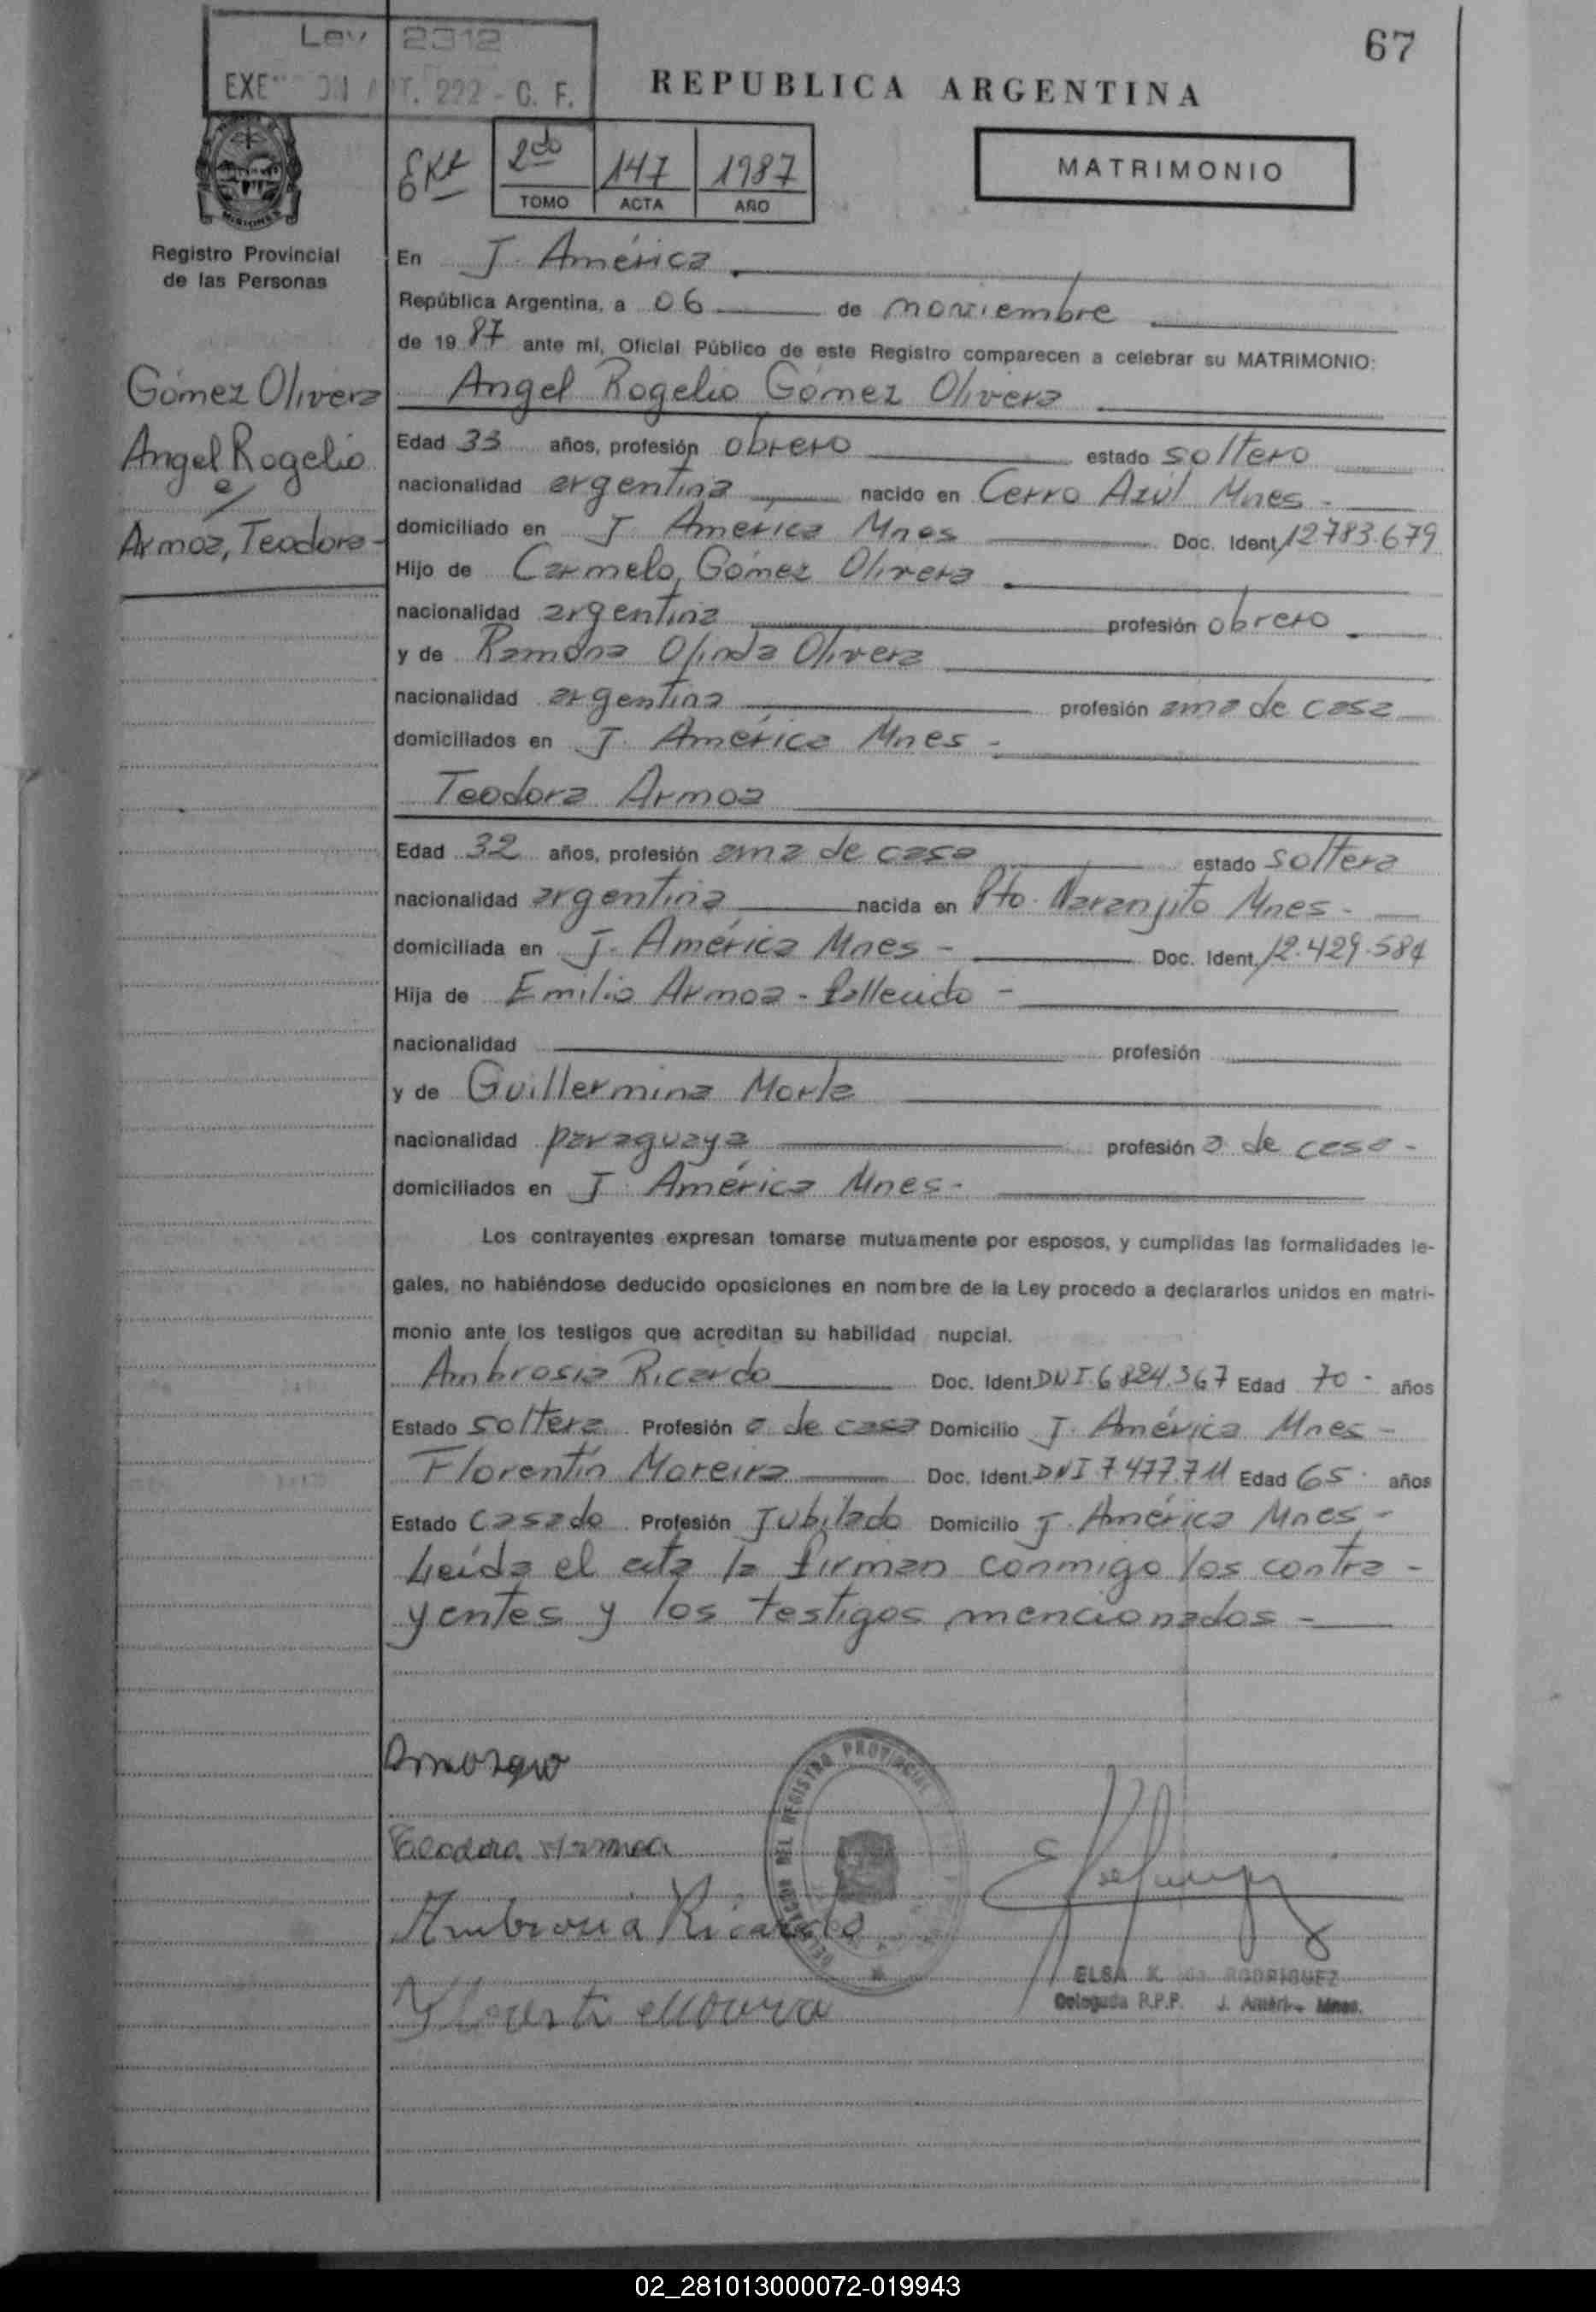 67
Ley 2312
EXE ART. 222 - C. F.
REPUBLICA ARGENTINA
2do 147 1987
TOMO ACTA AÑO
MATRIMONIO
MISIONES
Registro Provincial
de las Personas
Gómez Olivera
Angel Rogelio
Armoa, Teodora
En J. América
República Argentina, a 06 de noviembre
de 1987 ante mí, Oficial Público de este Registro comparecen a celebrar su MATRIMONIO:
Angel Rogelio Gómez Olivera
Edad 33 años, profesión obrero estado soltero
nacionalidad argentina nacido en Cerro Azúl Mnes -
domiciliado en J. América Mnes Doc. Ident. 12783.679
Hijo de Carmelo Gómez Olivera
nacionalidad argentina profesión obrero
y de Ramona Olinda Olivera
nacionalidad argentina profesión ama de casa
domiciliados en J. América Mnes -
Teodora Armoa
Edad 32 años, profesión ama de casa estado soltera
nacionalidad argentina nacida en Pto. Naranjito Mnes -
domiciliada en J. América Mnes - Doc. Ident. 12.429.584
Hija de Emilio Armoa - fallecido -
nacionalidad profesión
y de Guillermina Morla
nacionalidad paraguaya profesión a de casa -
domiciliados en J. América Mnes -
Los contrayentes expresan tomarse mutuamente por esposos, y cumplidas las formalidades le-
gales, no habiéndose deducido oposiciones en nombre de la Ley procedo a declararlos unidos en matri-
monio ante los testigos que acreditan su habilidad nupcial.
Ambrosia Ricardo Doc. Ident. DNI. 6824.367 Edad 70 - años
Estado soltera Profesión a de casa Domicilio J. América Mnes -
Florentín Moreira Doc. Ident. DNI 7477.711 Edad 65 años
Estado casado Profesión Jubilado Domicilio J. América Mnes -
Leída el acta la firman conmigo los contra -
yentes y los testigos mencionados -
Teodora Armoa
Ambrosia Ricardo
DELEGACION DEL REGISTRO PROVINCIAL
ELSA K. de RODRIGUEZ
Delegada R.P.P. J. Améri Mnes.
02_281013000072-019943